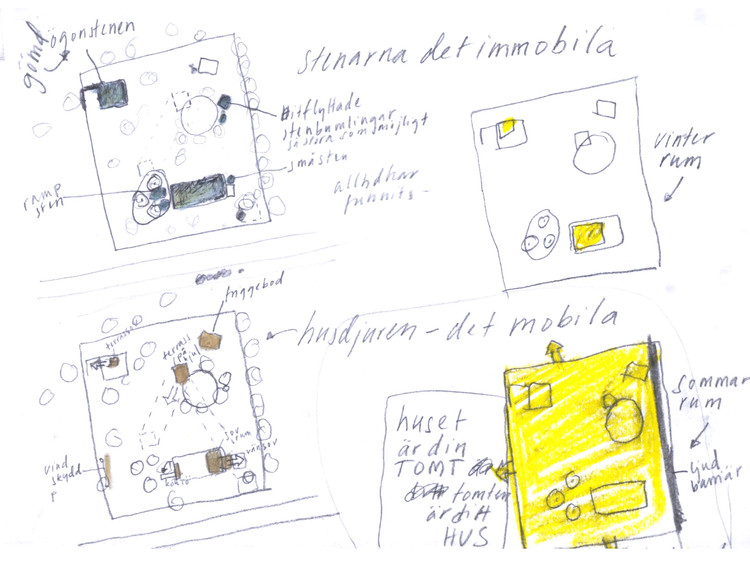 gömd
ögonstenen
stenarna det immobila
ditflyttade
stenbumlingar
så stora som möjligt
småsten
ramp
sten
alltid har
funnits -
vinter
rum
friggebod
husdjuren - det mobila
terrass
terrass
på
hjul
sov
rum
vind
skydd
huset
är din
TOMT
tomten
är ditt
HUS
sommar
rum
ljud
barriär